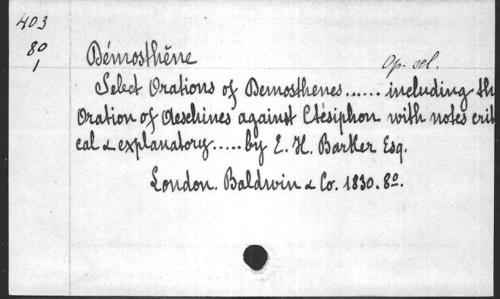 403
80
1
Démosthène
Op. sel.
Select Orations of Demosthenes...... including th
Oration of Aeschines against Ctésiphon with notes crit
cal & explanatory..... by E. H. Barker Esq.
London. Baldwin & Co. 1830. 8o.